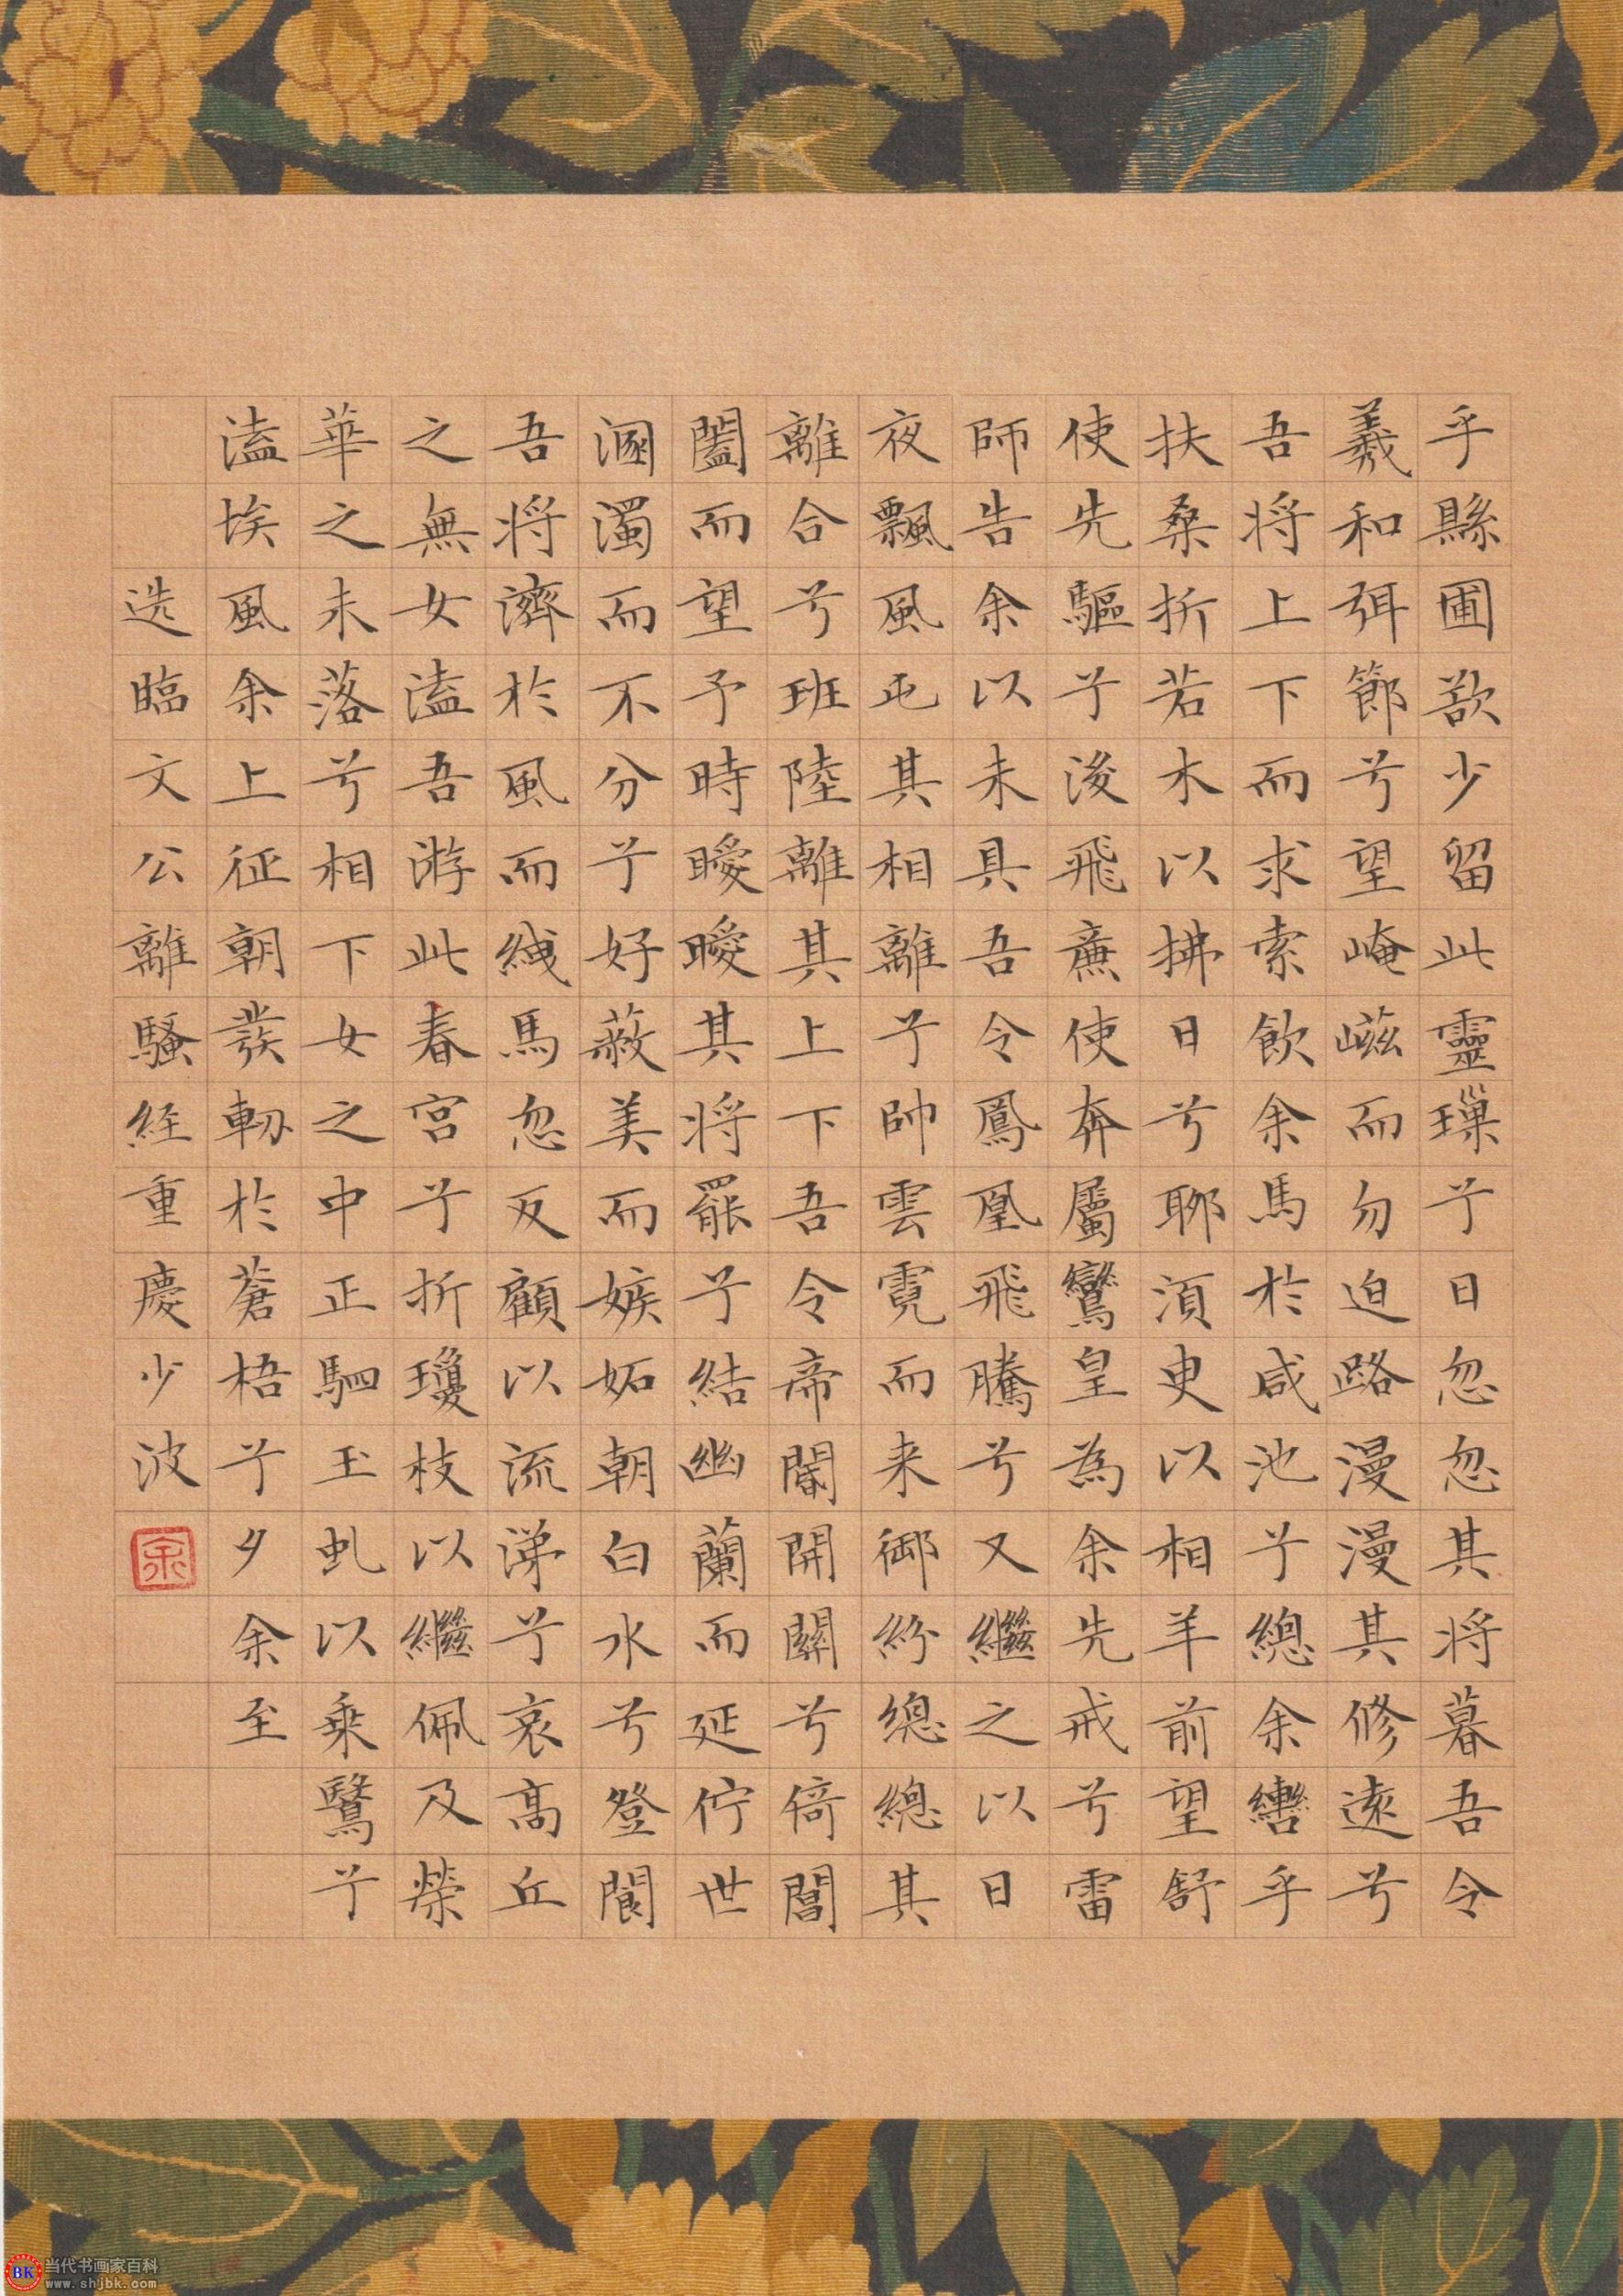 乎縣圃欲少留此靈璅兮日忽忽其將暮吾令
羲和弭節兮望崦嵫而勿迫路漫漫其修遠兮
吾將上下而求索飲余馬於咸池兮總余轡乎
扶桑折若木以拂日兮聊須臾以相羊前望舒
使先驅兮後飛廉使奔屬鸞皇為余先戒兮雷
師告余以未具吾令鳳凰飛騰兮又繼之以日
夜飄風屯其相離兮帥雲霓而来御紛總總其
離合兮班陸離其上下吾令帝閽開關兮倚閶
闔而望予時曖曖其將罷兮結幽蘭而延佇世
溷濁而不分兮好蔽美而嫉妬朝白水兮登閬
吾將濟於風而緤馬忽反顧以流涕兮哀高丘
之無女溘吾游此春宮兮折瓊枝以繼佩及榮
華之未落兮相下女之中正駟玉虬以乘鷖兮
溘埃風余上征朝發軔於蒼梧兮夕余至
选臨文公離騷經重慶少波
余
当代书画家百科
BK www.shjbk.com